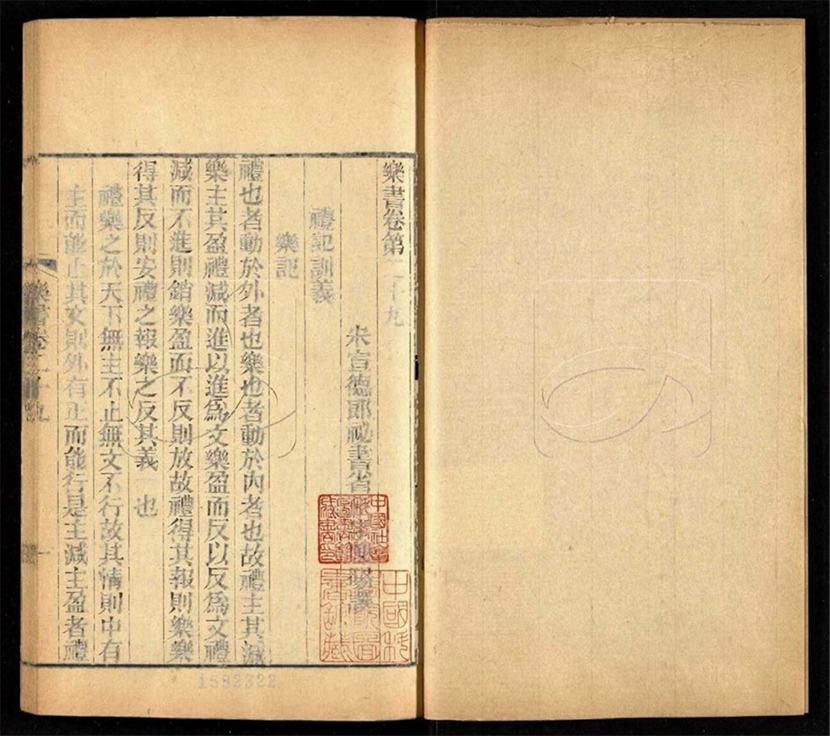 樂書卷第二十九
宋宣德郎祕書省正字陳暘撰
禮記訓義
樂記
禮也者動於外者也樂也者動於內者也故禮主其減
樂主其盈禮減而進以進爲文樂盈而反以反爲文禮
減而不進則銷樂盈而不反則放故禮得其報則樂樂
得其反則安禮之報樂之反其義 也
禮樂之於天下無主不止無文不行故其情則中有
主而能止其文則外有正而能行是主減主盈者禮
樂書卷二十九
一
1582322